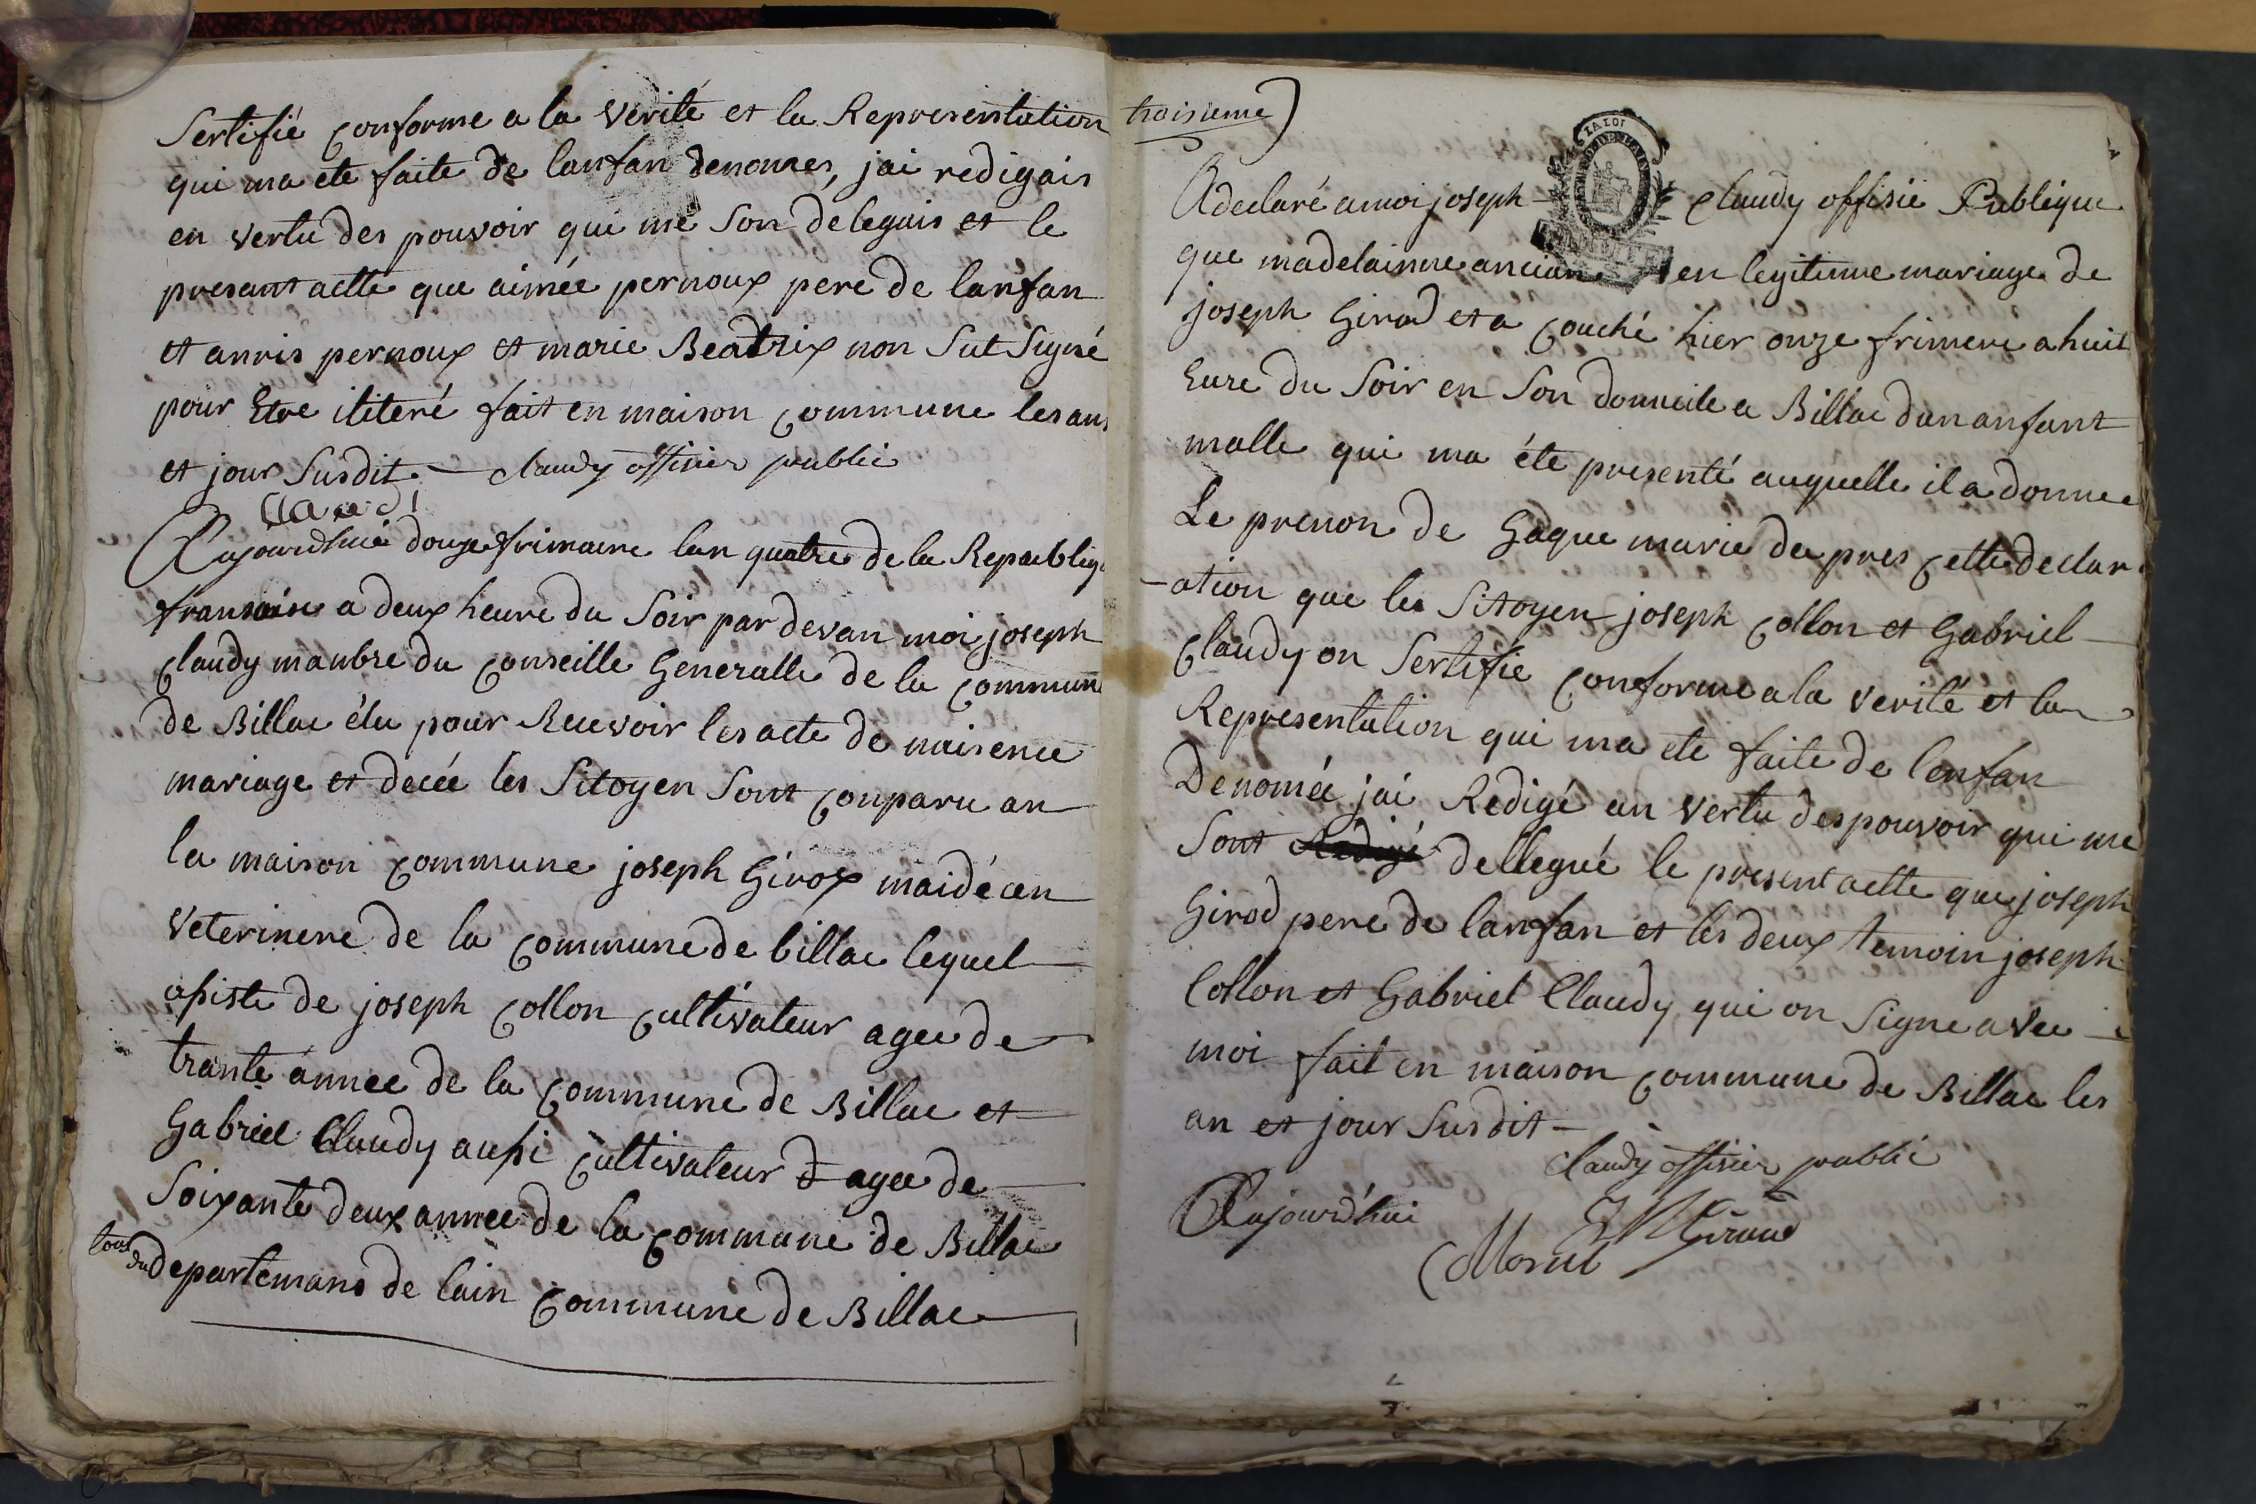 Sertifié conforme a la verité et la Representation
qui ma ete faite de lanfan denomes, jai redigais
en vertu des pouvoir qui me Son deleguis et le
presant actte que aimée pernoux pere de lanfan
et anris pernoux et marie Beatrix non Sut Signé
pour Etre iliteré fait en maison commune les ans
et jour Susdit. — claudy offisier public
Claudi
Aujourdhui douze frimaire lan quatre de la Republiq
fransaise a deux heure du Soir par devan moi joseph
Claudy manbre du Conseille Generalle de la commun
de Billac élu pour Recevoir les acte de naisence
mariage et decée les Sitoyen Sont conparu an
la maison commune joseph Girox maidécen
veterinere de la commune de billac lequel
asiste de joseph Collon cultivateur agee de
trante annee de la commune de Billac et
Gabriel Claudy aussi cultivateur agee de
Soixante deux annee de la commune de Billac
tous du departemans de lain commune de Billac
troisieme
A declaré a moi joseph Claudy offisie Publique
que madelainne ancian en legitime mariage de
joseph Girod et a couché hier onze frimere a huit
Eure du Soir en Son domicile a Billac dun anfant
malle qui ma éte presenté auquelle il a donnee
Le prenon de Gaque marie du pres cette declar
-ation que les Sitoyen joseph Collon et Gabriel
Claudy on Sertifie conforme a la verité et la
Representation qui ma ete faite de lenfan
Denomée jai Redigé an vertu des pouvoir qui me
Sont Rédigé dellegué le present actte que joseph
Girod pere de lanfan et les deux temoin joseph
Collon et Gabriel Claudy qui on Signe avec
moi fait en maison commune de Billac les
an et jour Susdit —
claudy offisier public
Aujourd'hui